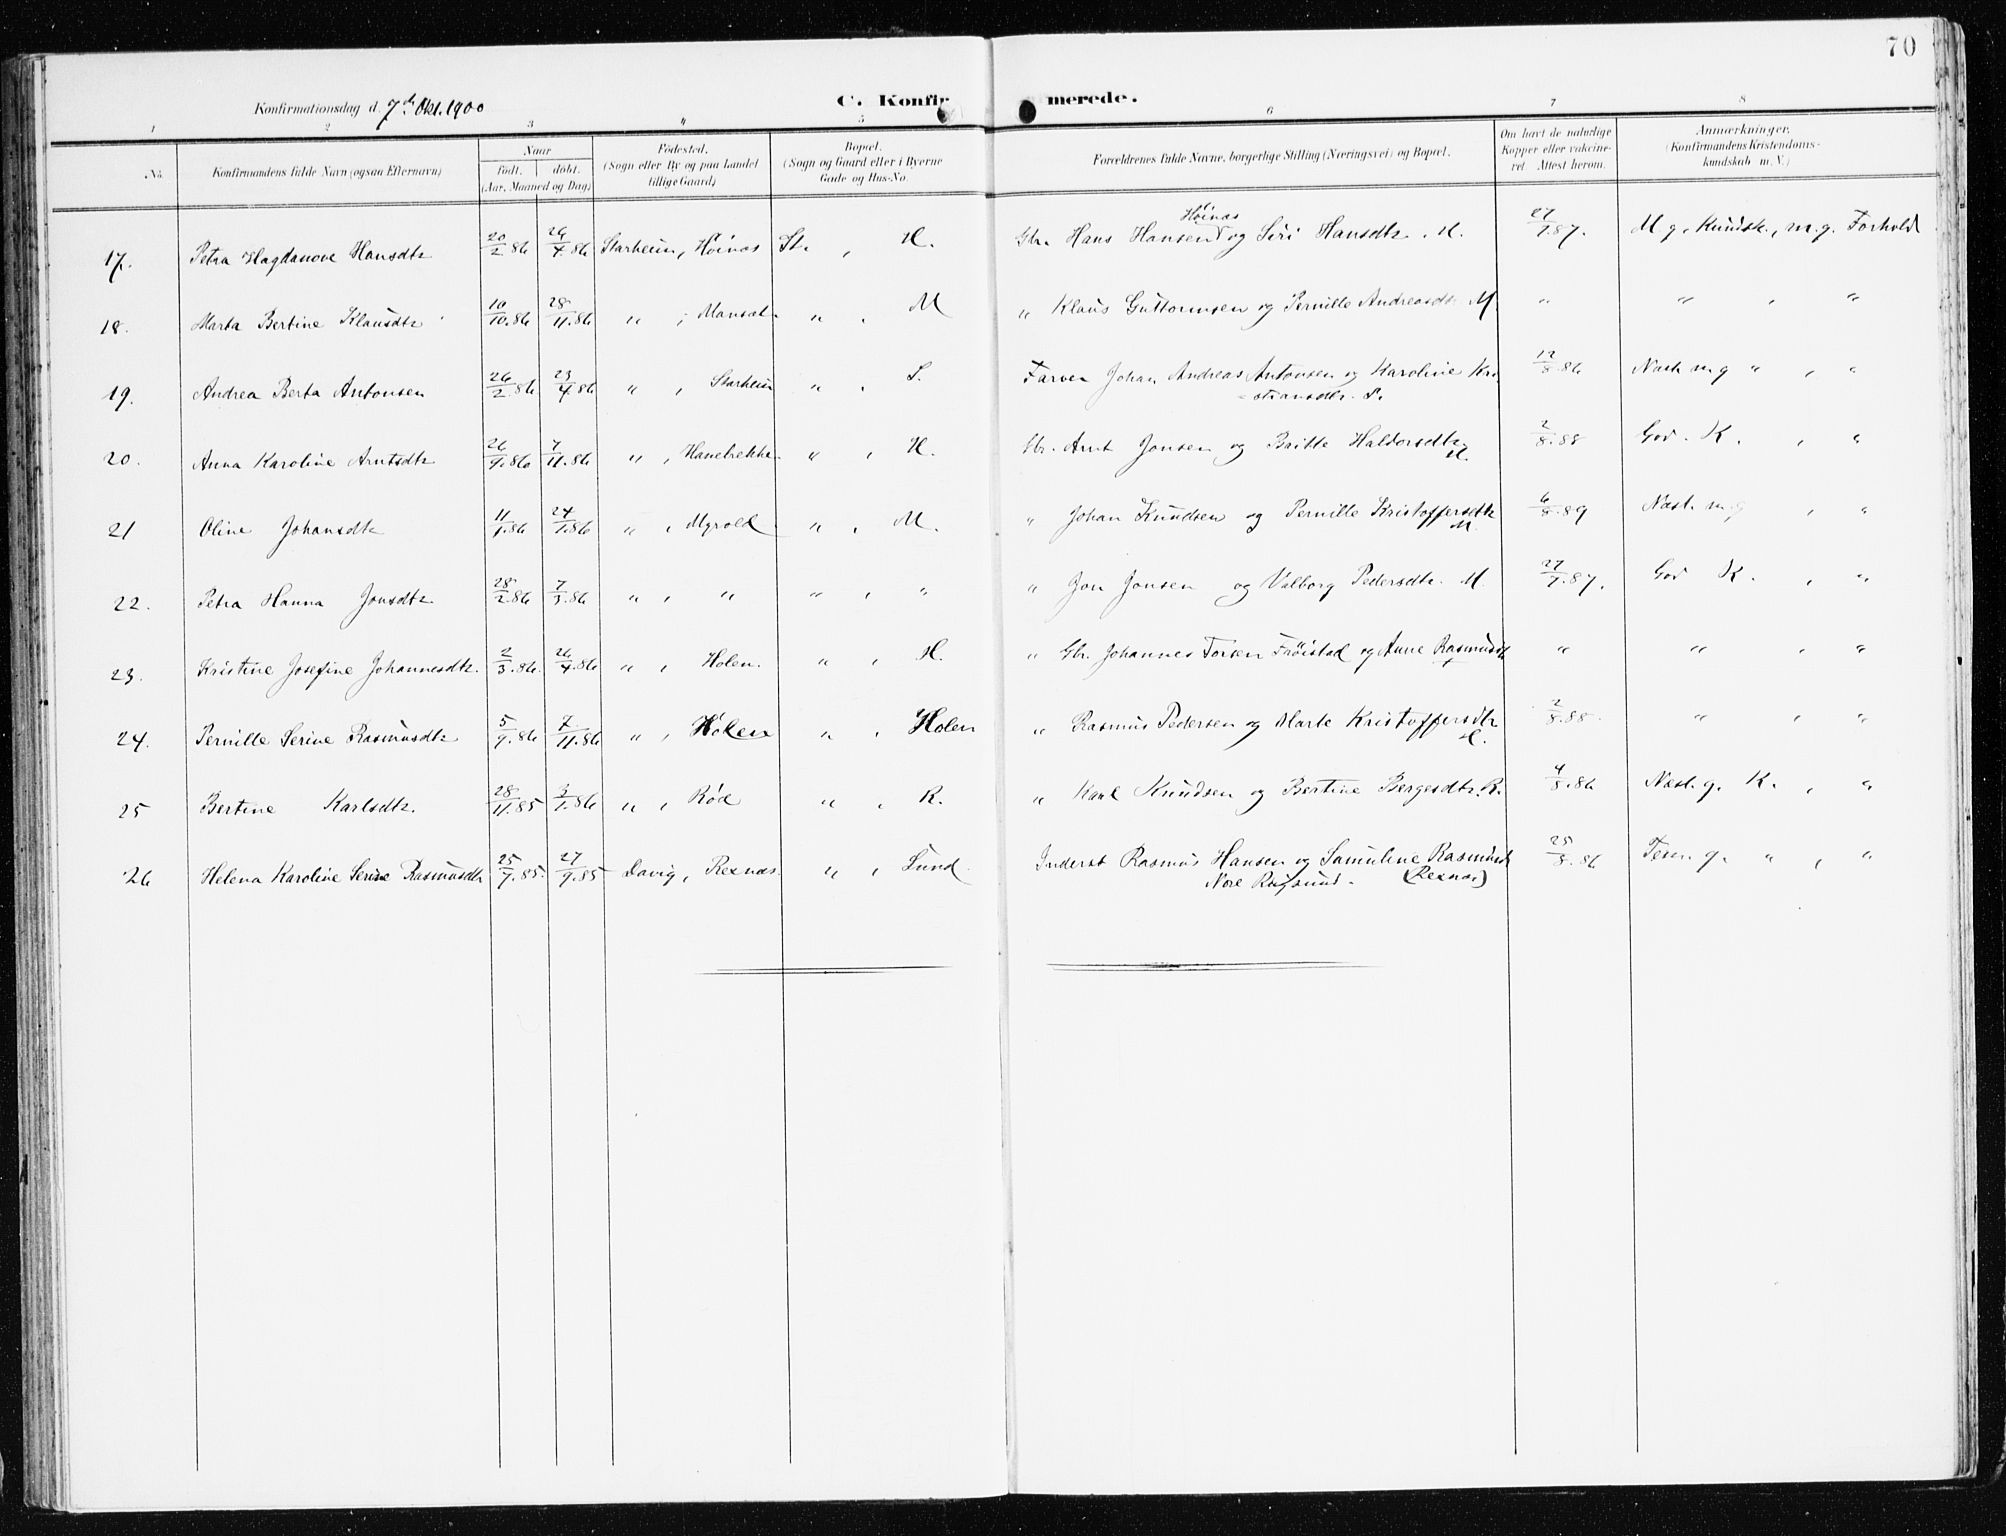 70
Konfirmationsdag d. 7de Okt. 1900
C. Konfirmerede.
1 2 3 4 5 6 7 8
No.
Konfirmandens fulde Navn (ogsaa Efternavn)
Naar
født. døbt.
(Aar, Maaned og Dag)
Fødested.
(Sogn eller By og paa Landet
tillige Gaard)
Bopæl.
(Sogn og Gaard eller i Byerne
Gade og Hus-No.
Forældrenes fulde Navne, borgerlige Stilling (Næringsvei) og Bopæl.
Om havt de naturlige
Kopper eller vakcine-
ret. Attest herom.
Anmærkninger.
(Konfirmandens Kristendoms-
kundskab m. V.)
Höinæs
17. Petra Magdanove Hansdtr 20/2 86 26/4 86 Starheim, Höinæs St. , H. Gbr. Hans Hansen og Siri Hansdtr. H. 27/7 87. M g. Kundsk., m. g. Forhold
18. Marta Bertine Klausdtr 10/10.86 28/11.86 " , Mansæt " , M " Klaus Guttormsen og Pernille Andreasdtr M. " " , "
19. Andrea Berta Antonsen 26/2 86 23/4 86 " , Starheim " , S. Farver Johan Andreas Antonsen og Karoline Kri-
stiansdtr. S. 12/8.86 Næst. m g " , "
20. Anna Karoline Arntsdtr 26/9.86 7/11.86 " , Hanebrekke " , H. Gbr. Arnt Jonsen og Britte Haldorsdtr
H. 2/8.88 God. K. , "
21 Oline Johansdtr 11/1.86 24/1.86 " , Myrold " , M. " Johan Knudsen og Pernille Kristoffersdtr
M. 6/8.89 Næst. m. g , "
22. Petra Hanna Jonsdtr 28/2.86 7/3.86 " , " " , " " Jon Jonsen og Valborg Pedersdtr. M. 27/7.87. God K. , "
23. Kristine Josefine Johannesdtr. 2/3.86. 26/4.86 " , Holen. " , H. " Gbr. Johannes Torsen Fröistad og Anne Rasmusdtr " " , "
24. Pernille Serine Rasmusdtr 5/9.86 7/11.86 " , Holen " , Holen " Rasmus Pedersen og Marte Kristoffersdtr
H. 2/8.88. " , "
25 Bertine Karlsdtr. 28/11.85 3/1.86 " , Röd " , R. " Karl Knudsen og Bertine Bergesdtr. R. 4/8.86 Næst. g. K. , "
26 Helena Karoline Serine Rasmusdtr 25/7.85. 27/9.85 Davig, Rexnæs " , Lund. Inderst Rasmus Hansen og Samuline Rasmusdtr
(Rexnæs) 25/8.86 Tem. g. " , "